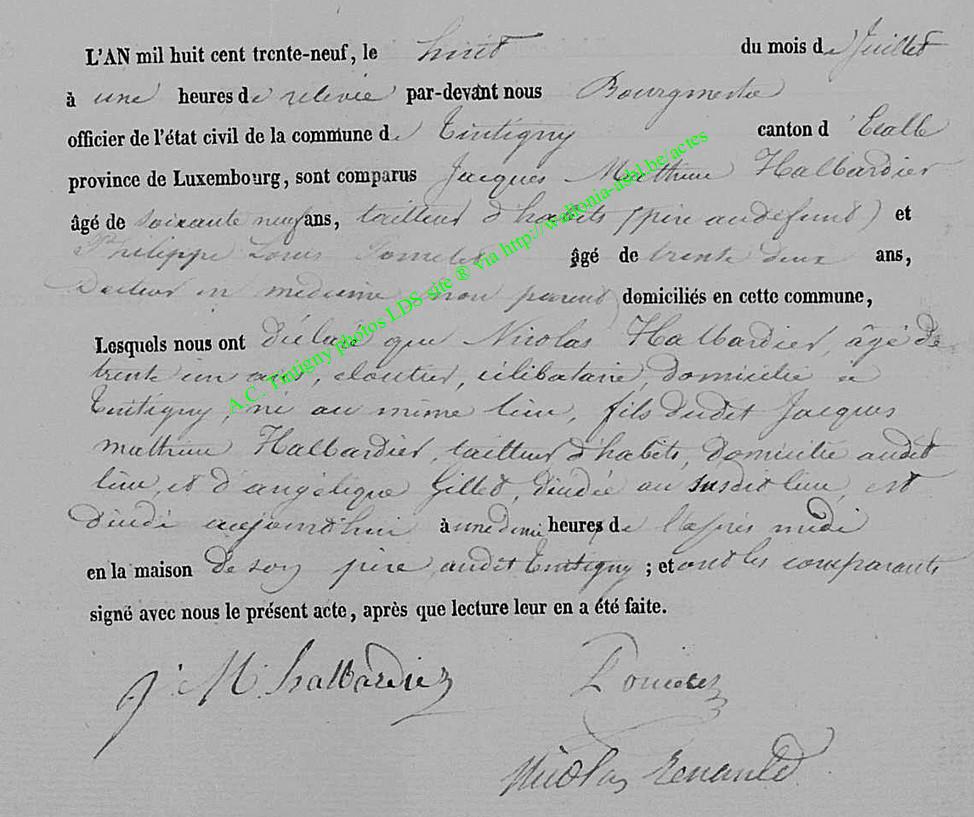 L'AN mil huit cent trente-neuf, le huit du mois de Juillet
à une heures de relevée par-devant nous Bourgmestre
officier de l'état civil de la commune de Tintigny canton d'Etalle
province de Luxembourg, sont comparus Jacques Mathieu Halbardier
âgé de soixante neuf ans, tailleur d'habits (père au défunt) et
Philippe Louis âgé de trente deux ans,
Docteur en médecine (non parent) domiciliés en cette commune,
Lesquels nous ont déclaré que Nicolas Halbardier âgé de
trente un ans, cloutier, célibataire, domicilié à
Tintigny, né au même lieu, fils dudit Jacques
mathieu Halbardier, tailleur d'habits, domicilié audit
lieu, et d'angélique Gillet, décédée au susdit lieu, est
décédé aujourd'hui à une demi heures de l'après midi
en la maison de son père audit Tintigny ; et ont les comparants
signé avec nous le présent acte, après que lecture leur en a été faite.
J M halbardier
Nicolas Renauld
A.C. Tintigny photos LDS site ® via http://wallonia-asbl.be/actes